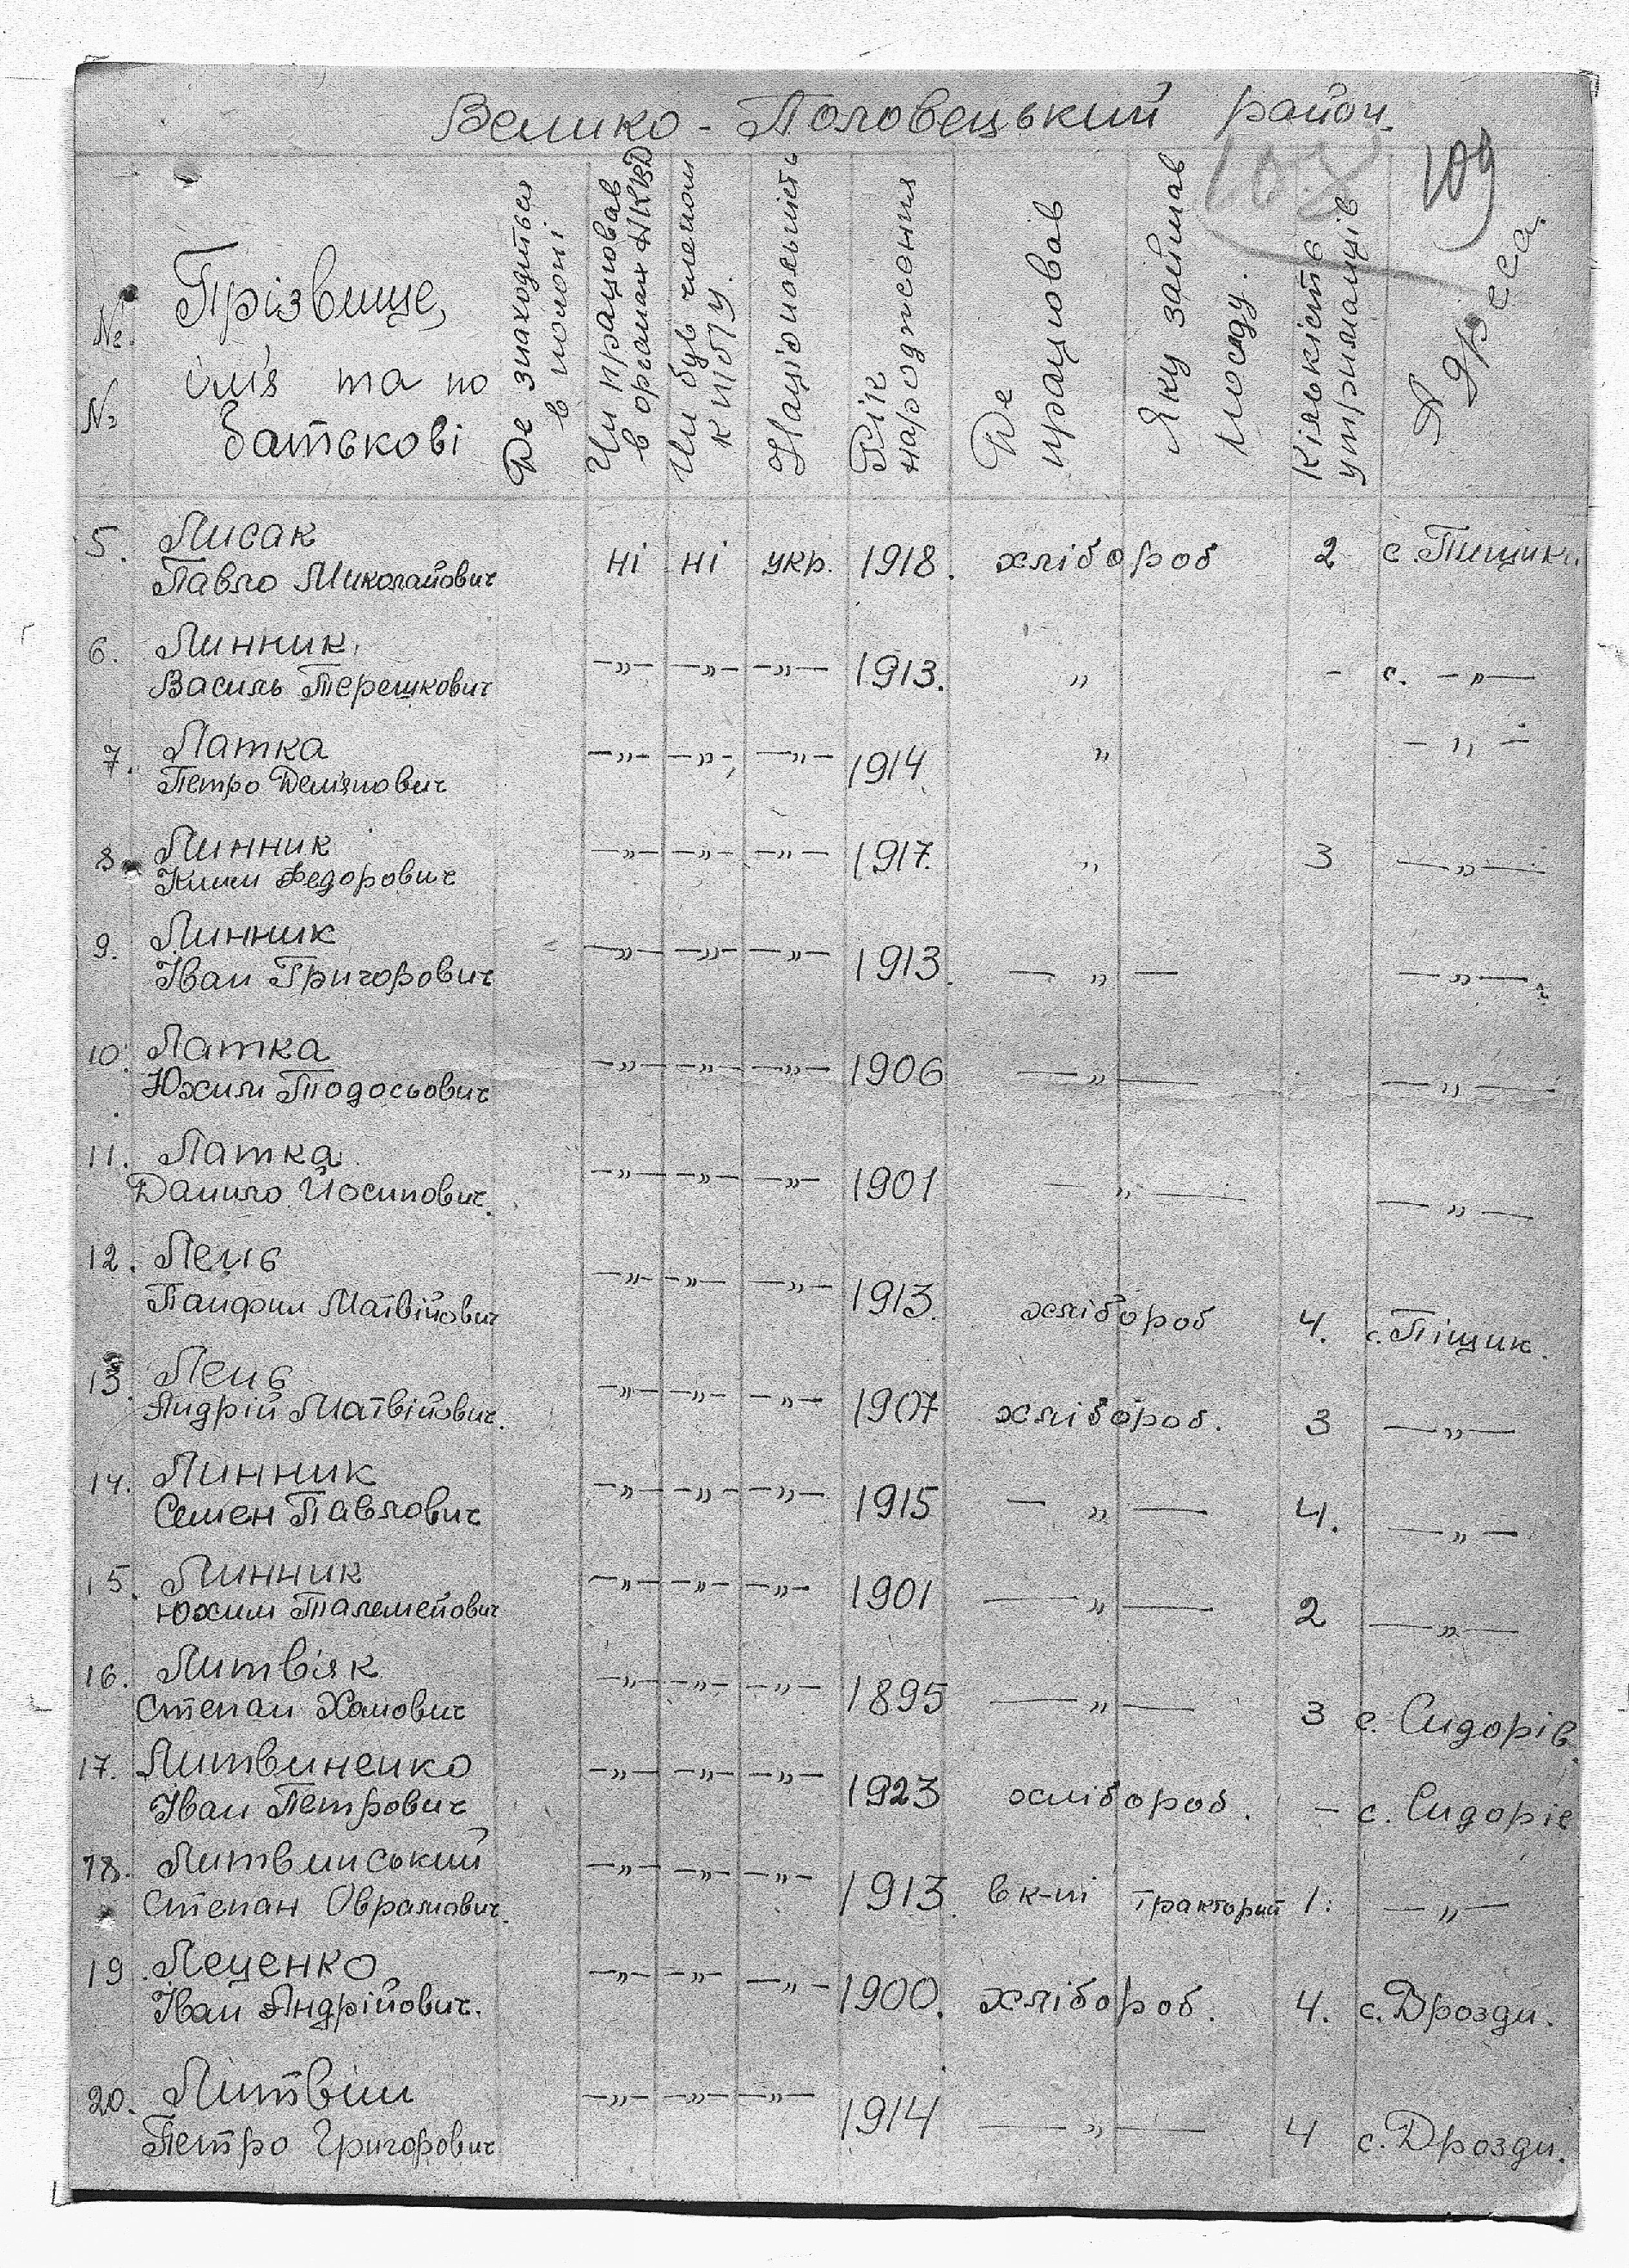 Велико - Половецький район.
108 109
№ №
Прізвище,
ім'я та по
батькові
Де знаходиться
в полоні
Чи працював
в органах НКВД
Чи був членом
КП(б)У.
Національність
Рік
народження
Де
працював
Яку займав
посаду.
Кількість
утриманців
Адреса.
5. Лисак
Павло Миколайович ні ні укр. 1918. хлібороб 2 с. Пищики.
6. Линник,
Василь Терешкович —„— —„— —„— 1913. „ - с. —„—
7. Латка
Петро Дем'янович —„— —„— —„— 1914 „ —„—
8. Линник
Клим Федорович —„— —„— —„— 1917. „ 3 —„—
9. Линник
Іван Григорович —„— —„— —„— 1913. —„— —„—
10. Латка
Юхим Тодосьович —„— —„— —„— 1906 —„— —„—
11. Латка
Данило Йосипович. —„— —„— —„— 1901 —„— —„—
12. Лець
Панфил Матвійович —„— —„— —„— 1913. хлібороб 4. с. Піщик.
13. Лець
Андрій Матвійович. —„— —„— —„— 1907 хлібороб. 3 —„—
14. Линник
Семен Павлович —„— —„— —„— 1915 —„— 4. —„—
15. Линник
Юхим —„— —„— —„— 1901 —„— 2 —„—
16. Литвяк
Степан Хомович —„— —„— —„— 1895 —„— 3 с. Сидорів.
17. Литвиненко
Іван Петрович —„— —„— —„— 1923 хлібороб. - с. Сидорів
18. Литвинський
Степан Оврамович. —„— —„— —„— 1913. в к-пі 1. —„—
19. Леценко
Іван Андрійович. —„— —„— —„— 1900. хлібороб. 4. с. Дрозди.
20. Литвін
Петро Григорович —„— —„— —„— 1914 —„— 4 с. Дрозди.